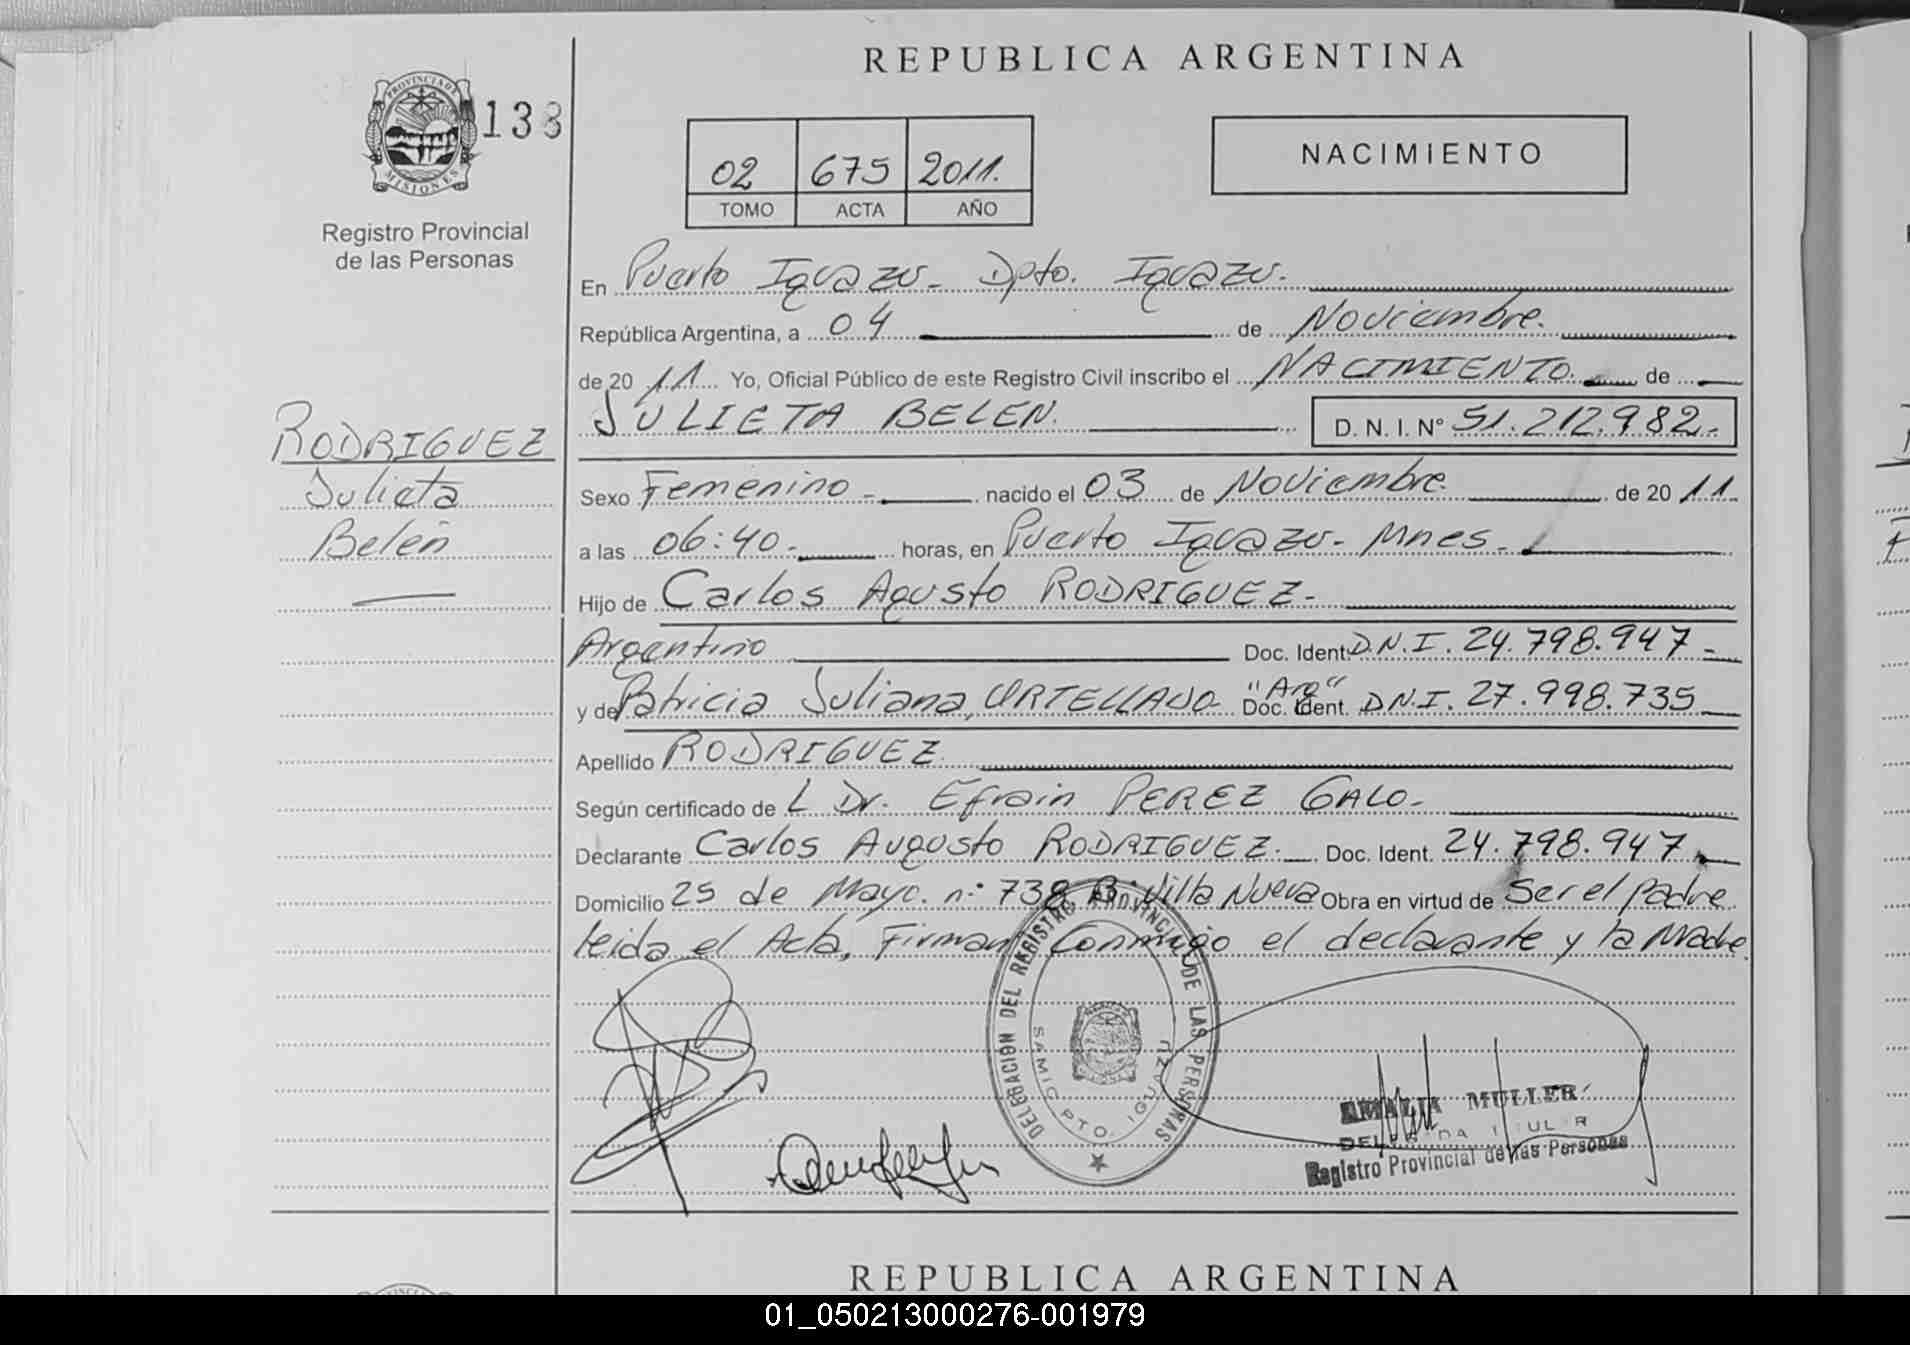 REPUBLICA ARGENTINA
PROVINCIA DE MISIONES
133
Registro Provincial
de las Personas
02 675 2011.
TOMO ACTA AÑO
NACIMIENTO
En Puerto Iguazu - Dpto. Iguazu.
República Argentina, a 04 de Noviembre.
de 20 11 Yo, Oficial Público de este Registro Civil inscribo el NACIMIENTO. de
JULIETA BELEN. D. N. I. Nº 51.212.982.-
RODRIGUEZ
Julieta
Belén
Sexo Femenino - nacido el 03 de Noviembre de 20 11.
a las 06:40.- horas, en Puerto Iguazu - Mnes -
Hijo de Carlos Agusto RODRIGUEZ -
Argentino Doc. Ident. D.N.I. 24.798.947 -
y de Patricia Juliana, URTELLADO "Arg" Doc. Ident. D.N.I. 27.998.735
Apellido RODRIGUEZ
Según certificado de L Dr. Efrain PEREZ GALO -
Declarante Carlos Augusto RODRIGUEZ. Doc. Ident. 24.798.947
Domicilio 25 de Mayo. n:° 738 B: Villa Nueva Obra en virtud de Ser el padre
leida el Acta, Firman Conmigo el declarante y la Madre.
DELEGACION DEL REGISTRO PROVINCIAL DE LAS PERSONAS
SAMIC PTO. IGUAZU
AMALIA MULLER
Registro Provincial de las Personas
REPUBLICA ARGENTINA
01_050213000276-001979